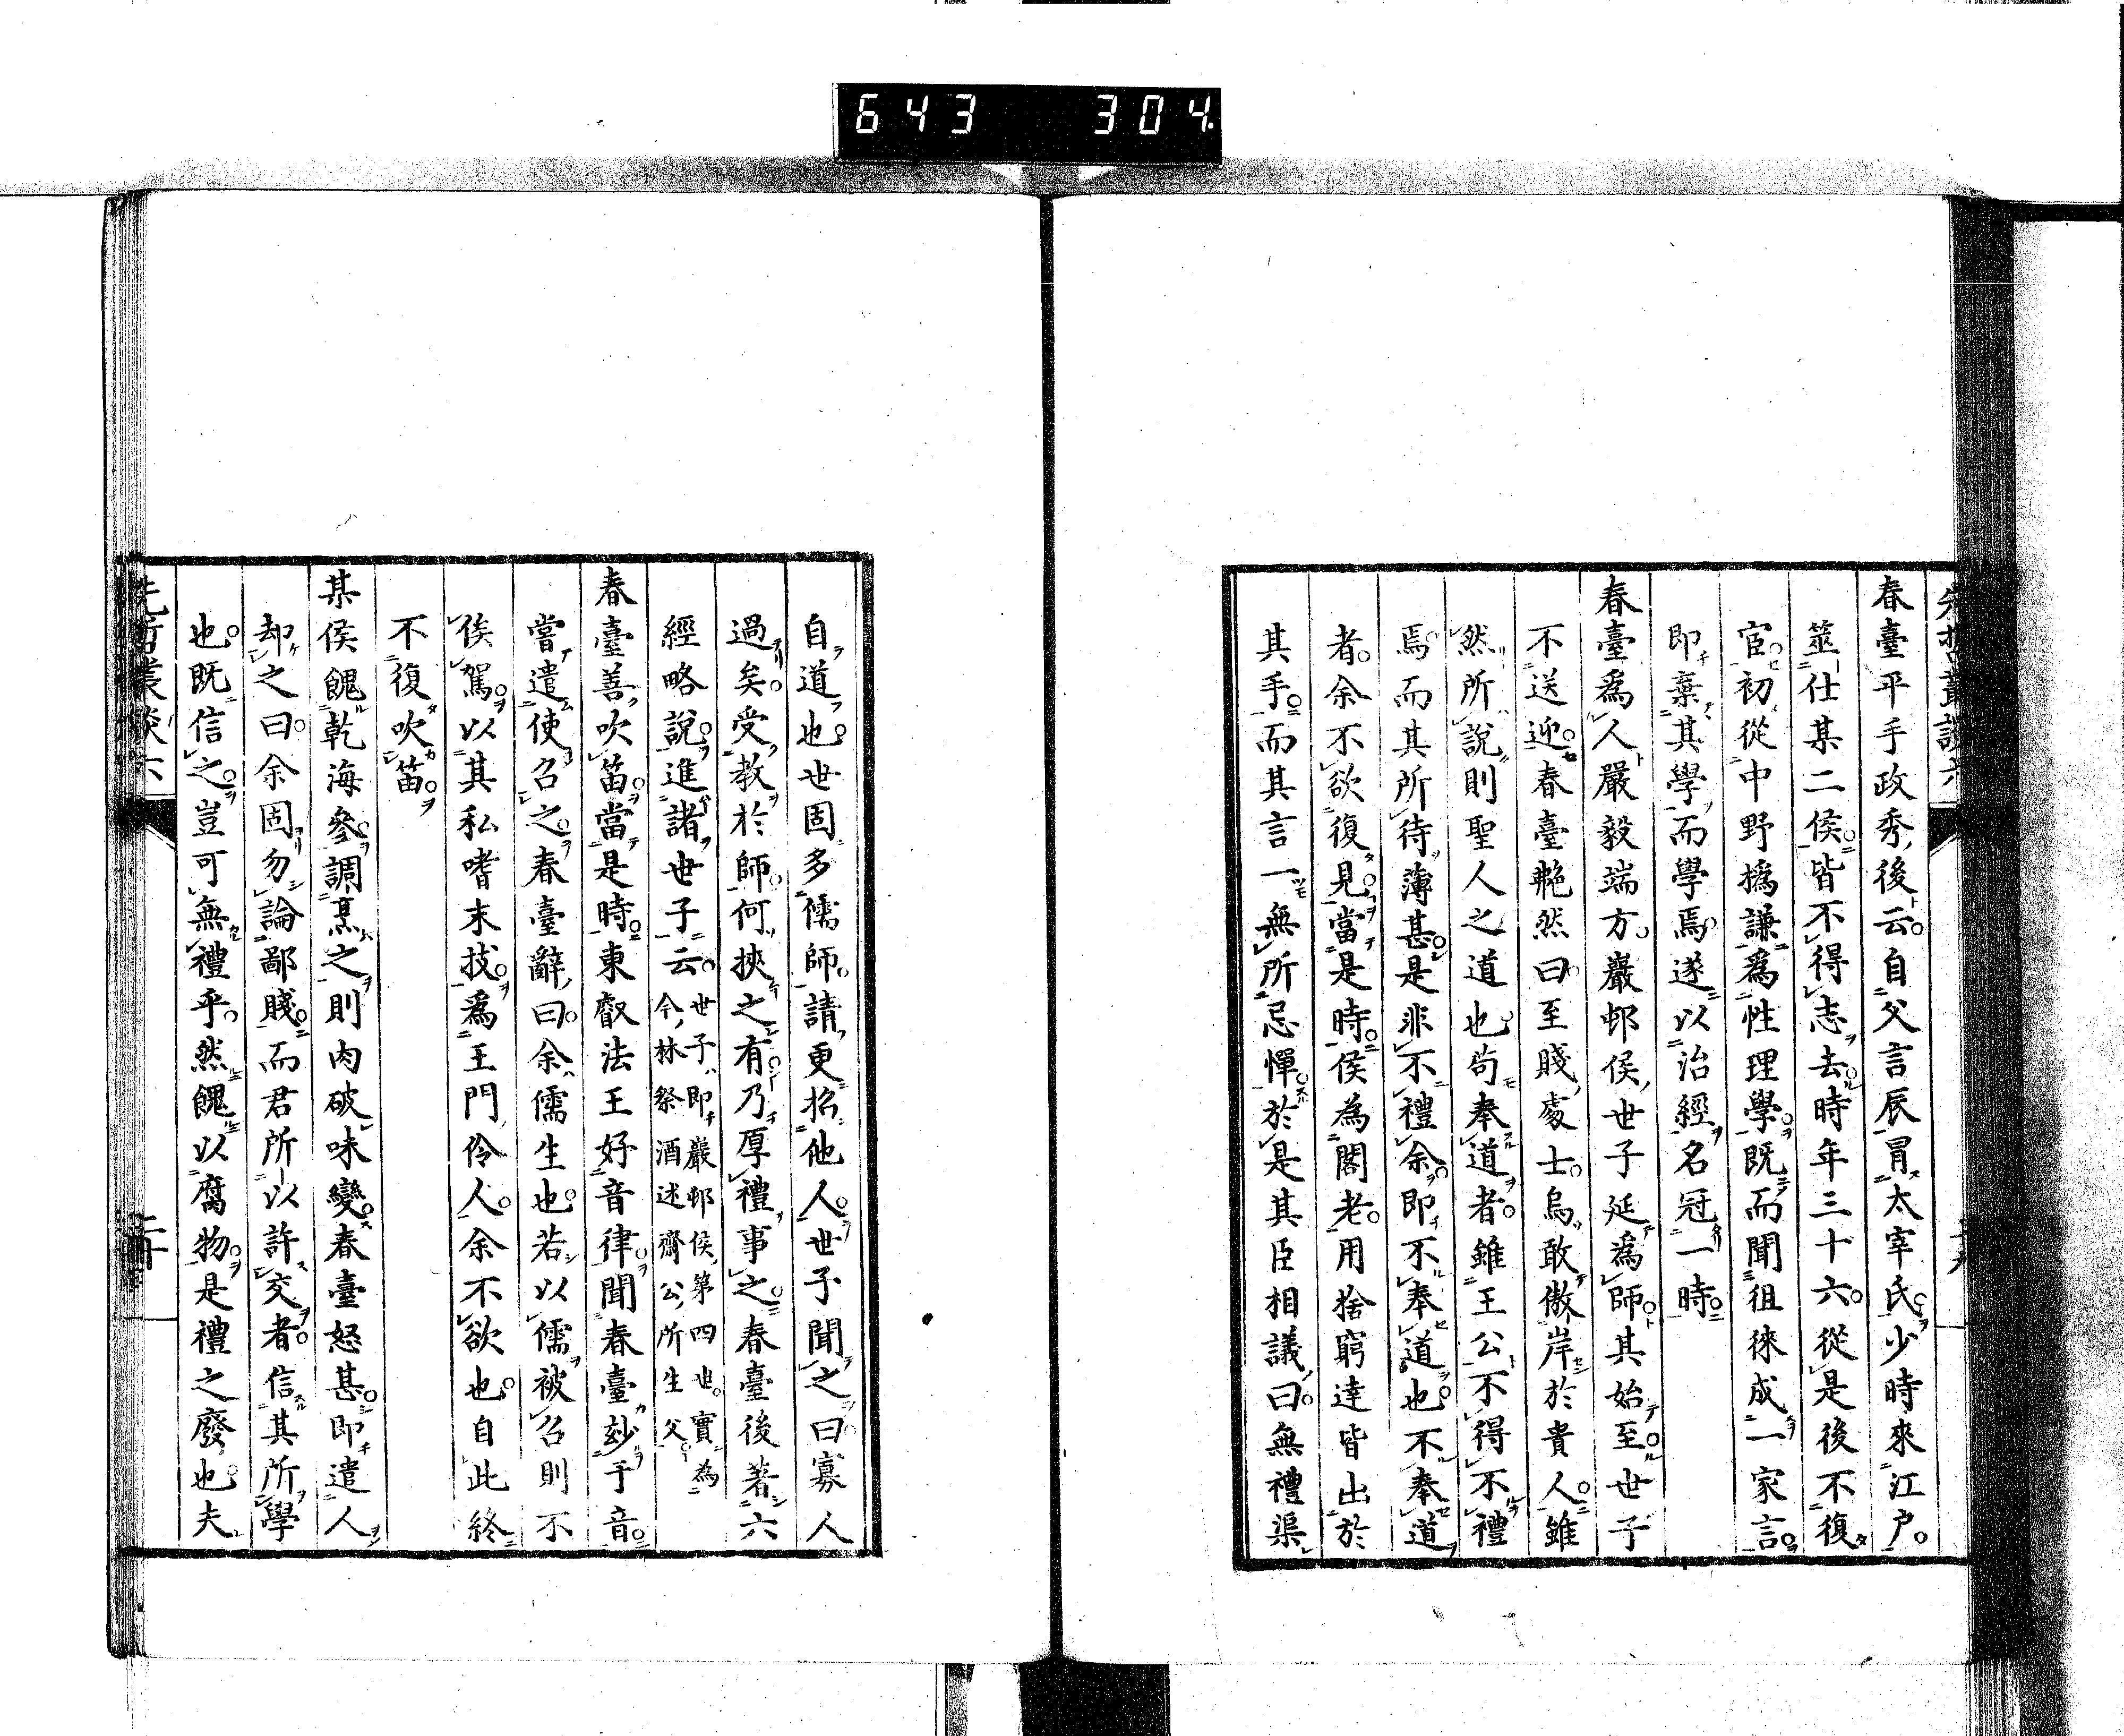 643 304
先哲叢談六 十九
春臺平手政秀後云自父言辰冒太宰氏少時來江戶
筮仕某二侯皆不得志去時年三十六從是後不復
宦初從中野撝謙爲性理學既而聞徂徠成一家言
即棄其學而學焉遂以治經名冠一時
春臺爲人嚴毅端方巖邨侯世子延爲師其始至世子
不送迎春臺艴然曰至賤處士烏敢傲岸於貴人雖
然所說則聖人之道也尚奉道者雖王公不得不禮
焉而其所待薄甚是非不禮余即不奉道也不奉道
者余不欲復見當是時侯為閣老用捨窮達皆出於
其手而其言一無所忌憚於是其臣相議曰無禮渠
自道也世固多儒師請更招他人世子聞之曰寡人
過矣受教於師何挾之有乃厚禮事之春臺後著六
經略說進諸世子云世子即巖邨侯第四世實為
今林祭酒述齋公所生父
春臺善吹笛當是時東叡法王好音律聞春臺玅于音
嘗遣使召之春臺辭曰余儒生也若以儒被召則不
俟駕以其私嗜末技爲王門伶人余不欲也自此終
不復吹笛
某侯餽乾海參調烹之則肉破味變春臺怒甚即遣人
却之曰余固勿論鄙賤而君所以許交者信其所學
也既信之豈可無禮乎然餽以腐物是禮之廢也夫
先哲叢談六 二十